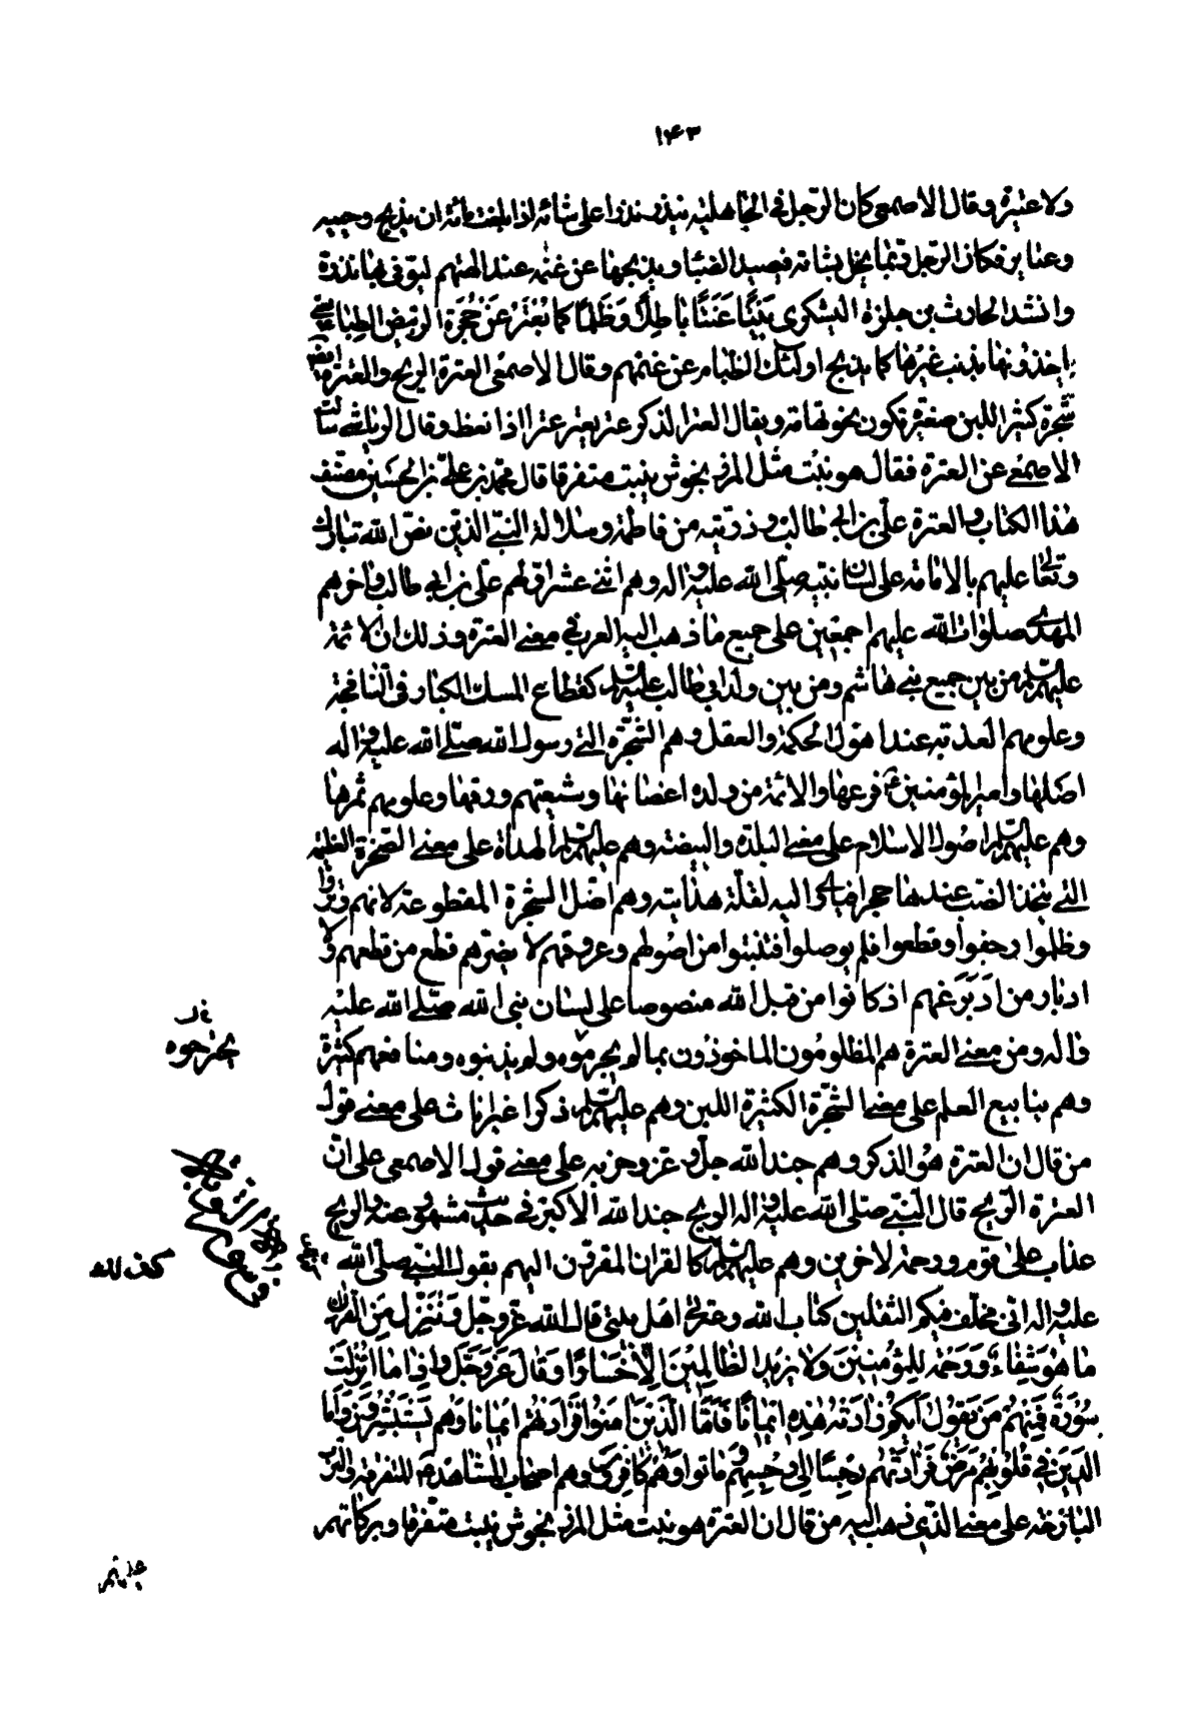 ١٤٣
ولا عتيرة وقال الاصمعي كان الرجل في الجاهلية ينذر نذرا على شائه اذا بلغت مائة ان يذبح رجبيه
وعتاير فكان الرجل ربما بخل بشاته فيصيد الظبا ويذبحها عن غنمه عند الهتهم ليوفي بها نذره
وانشد الحارث بن حلزة اليشكري عَنَتًا بَاطِلًا وَظُلْمًا كما تُعْتَرُ عَن حُجْرَة الربيض الظبا يعني
ياخذونها بذنب غيرها كما يذبح اولئك الظباء عن غنمهم وقال الاصمعي العترة الريح والعترة ايضا
شجرة كثيرة اللبن صغيرة تكون نحو تهامة ويقال العتر الذكر عتر يعتر عترا اذا نعظ وقال الرياشي سالت
الاصمعي عن العترة فقال هو نبت مثل المرزنجوش ينبت متفرقا قال محمد بن علي بن الحسين مصنف
هذا الكتاب والعترة علي بن ابي طالب وذريته من فاطمة وسلالة النبي الذين نص الله تبارك
وتعالى عليهم بالامامة على لسان نبيه صلى الله عليه واله وهم اثنى عشر اولهم علي بن ابي طالب واخرهم
المهدي صلوات الله عليهم اجمعين على جميع ما ذهب اليه العرب في معنى العترة وذلك ان الائمة
عليهم السلام من بين جميع بني هاشم ومن بين ولد ابي طالب عليه السلام كقطاع المسك الكبار في النافجة
وعلومهم العذبة عند اهل الحكمة والعقل وهم الشجرة التي رسول الله صلى الله عليه واله
اصلها وامير المؤمنين ع فرعها والائمة من ولده اغصانها وشيعتهم ورقها وعلومهم ثمرها
وهم عليهم السلام اصول الاسلام على معنى البلدة والبيضة وهم عليهم السلام الهداة على معنى الصخرة العظيمة
التي يتخذ الضب عندها حجرا ياوي اليه لقلة هدايته وهم اصل الشجرة المقطوعة لانهم وتروا
وظلموا وجفوا وقطعوا فلم يوصلوا فنبتوا من اصولهم وعروقهم لا يضرهم قطع من قطعهم ولا
ادبار من ادبر عنهم اذ كانوا من قبل الله منصوصا على لسان نبي الله صلى الله عليه
واله ومن معنى العترة هم المظلومون الماخوذون بما لم يجرموه ولم يذنبوه ومنافعهم كثيرة
وهم ينابيع العلم على معنى الشجرة الكثيرة اللبن وهم عليهم السلام ذكرا غير اناث على معنى قول
من قال ان العترة هو الذكر وهم جند الله جل وعز وحزبه على معنى قول الاصمعي على ان
العترة الريح قال النبي صلى الله عليه واله الريح جند الله الاكبر في حديث مشهور عنه والريح
عذاب على قوم ورحمة لاخرين وهم عليهم السلام كالقران المقرون اليهم بقول النبي صلى الله
عليه واله اني مخلف فيكم الثقلين كتاب الله وعترتي اهل بيتي قال الله عز وجل وَنُنَزِّل مِنَ القران
مَا هُوَ شِفَاءٌ وَرَحْمَةٌ لِلمُؤمِنِينَ وَلَا يَزِيدُ الظَالِمِينَ اِلَّا خَسَارًا وَقَالَ عَزَّ وَجَلَّ وَاِذَا مَا اُنْزِلَتْ
سُورَةٌ فَمِنْهُمْ مَنْ يَقُولُ اَيُّكُم زَادَتْهُ هٰذِهِ اِيْمَانًا فَاَمَّا الَّذِينَ اٰمَنُوا فَزَادَتْهُمْ اِيْمَانًا وَهُم يَسْتَبْشِرُونَ وَاَمَّا
الَّذِينَ فِي قُلُوبِهِم مَرَضٌ فَزَادَتْهُم رِجْسًا اِلى رِجْسِهِم وَمَاتُوا وَهُم كَافِرُونَ وهم اصحاب المشاهد المتفرقة
النازحة على معنى الذي ذهب اليه من قال ان العترة هو نبت مثل المرزنجوش ينبت متفرقا وبركاتهم